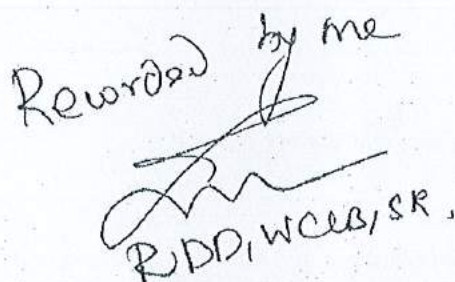 Recorded by me
R,DD, WCCB, SR,